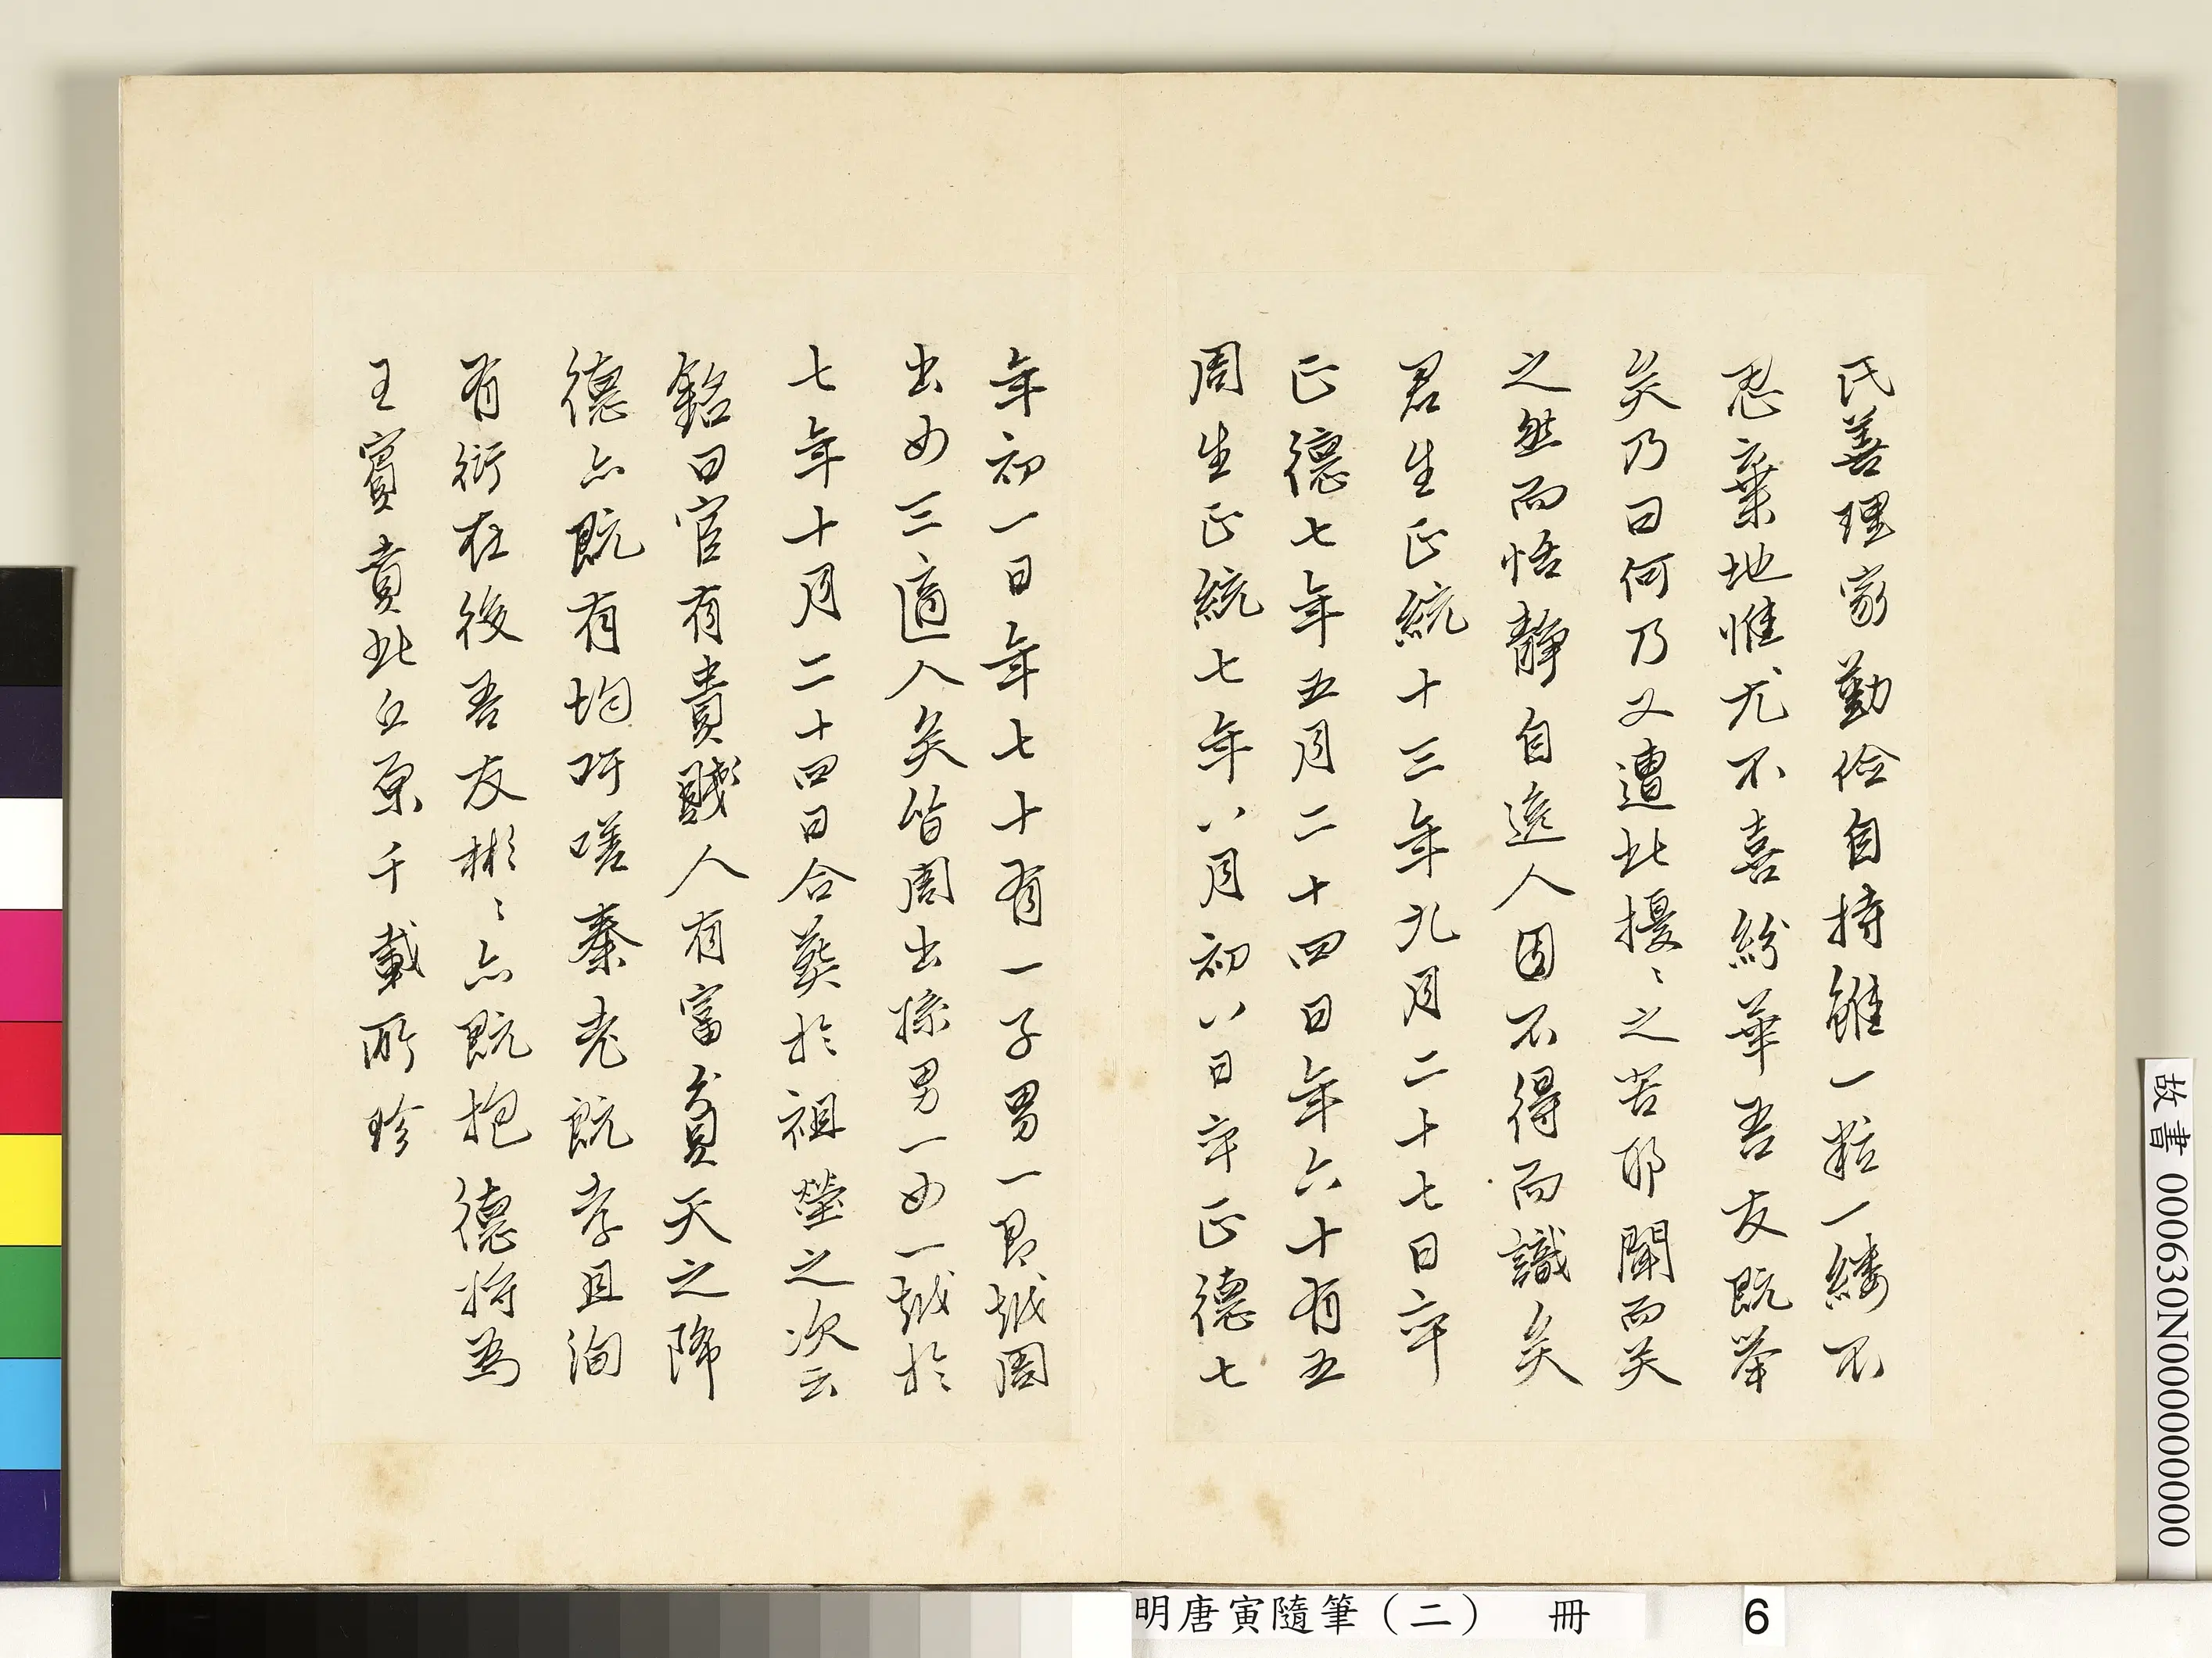 氏善理家勤儉自持雖一粒一縷不
忍棄地惟尤不喜紛華吾友既舉
矣乃曰何乃又遭此擾〻之苦耶聞而笑
之然而悟靜自逸人固不得而識矣
君生正統十三年九月二十七日卒
正德七年五月二十四日年六十有五
周生正統七年八月初八日卒正德七
年初一日年七十有一子男一即城周
出女三適人矣皆周出孫男一女一城於
七年十月二十四日合葬於祖塋之次云
銘曰官有貴賤人有富貧天之降
德亦既有均吁嗟秦老既孝且洵
有衍在後吾友彬〻亦既抱德將為
王賓賁此丘原千載所珍
明唐寅隨筆（二） 冊 6
故書 000630N000000000